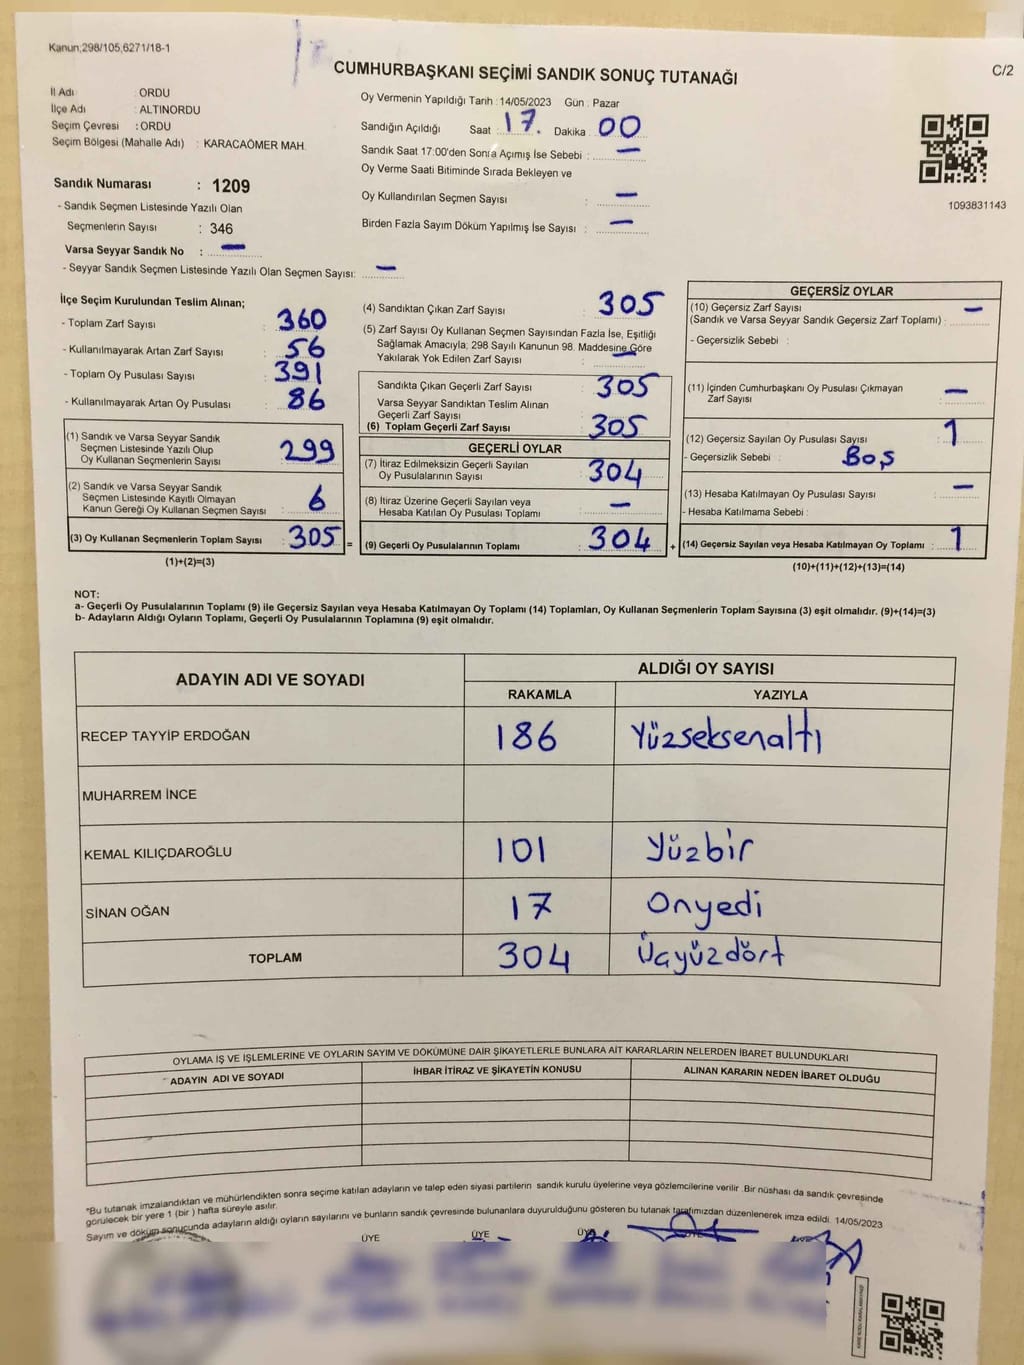 Kanun,298/105,6271/18-1
CUMHURBAŞKANI SEÇİMİ SANDIK SONUÇ TUTANAĞI
C/2
İl Adı : ORDU
İlçe Adı : ALTINORDU
Seçim Çevresi : ORDU
Seçim Bölgesi (Mahalle Adı) : KARACAÖMER MAH.
Sandık Numarası : 1209
- Sandık Seçmen Listesinde Yazılı Olan
Seçmenlerin Sayısı : 346
Varsa Seyyar Sandık No : —
- Seyyar Sandık Seçmen Listesinde Yazılı Olan Seçmen Sayısı: —
Oy Vermenin Yapıldığı Tarih : 14/05/2023 Gün : Pazar
Sandığın Açıldığı Saat : 17. Dakika : 00
Sandık Saat 17:00'den Sonra Açımış İse Sebebi : —
Oy Verme Saati Bitiminde Sırada Bekleyen ve
Oy Kullandırılan Seçmen Sayısı : —
Birden Fazla Sayım Döküm Yapılmış İse Sayısı : —
1093831143
İlçe Seçim Kurulundan Teslim Alınan;
- Toplam Zarf Sayısı : 360
- Kullanılmayarak Artan Zarf Sayısı : 56
- Toplam Oy Pusulası Sayısı : 391
- Kullanılmayarak Artan Oy Pusulası : 86
(1) Sandık ve Varsa Seyyar Sandık
Seçmen Listesinde Yazılı Olup
Oy Kullanan Seçmenlerin Sayısı : 299
(2) Sandık ve Varsa Seyyar Sandık
Seçmen Listesinde Kayıtlı Olmayan
Kanun Gereği Oy Kullanan Seçmen Sayısı : 6
(3) Oy Kullanan Seçmenlerin Toplam Sayısı : 305 =
(1)+(2)=(3)
(4) Sandıktan Çıkan Zarf Sayısı : 305
(5) Zarf Sayısı Oy Kullanan Seçmen Sayısından Fazla İse, Eşitliği
Sağlamak Amacıyla; 298 Sayılı Kanunun 98. Maddesine Göre
Yakılarak Yok Edilen Zarf Sayısı : —
Sandıkta Çıkan Geçerli Zarf Sayısı : 305
Varsa Seyyar Sandıktan Teslim Alınan
Geçerli Zarf Sayısı :
(6) Toplam Geçerli Zarf Sayısı : 305
GEÇERLİ OYLAR
(7) İtiraz Edilmeksizin Geçerli Sayılan
Oy Pusulalarının Sayısı : 304
(8) İtiraz Üzerine Geçerli Sayılan veya
Hesaba Katılan Oy Pusulası Toplamı : —
(9) Geçerli Oy Pusulalarının Toplamı : 304 +
GEÇERSİZ OYLAR
(10) Geçersiz Zarf Sayısı —
(Sandık ve Varsa Seyyar Sandık Geçersiz Zarf Toplamı) :
- Geçersizlik Sebebi :
(11) İçinden Cumhurbaşkanı Oy Pusulası Çıkmayan
Zarf Sayısı : —
(12) Geçersiz Sayılan Oy Pusulası Sayısı : 1
- Geçersizlik Sebebi : Boş
(13) Hesaba Katılmayan Oy Pusulası Sayısı : —
- Hesaba Katılmama Sebebi :
(14) Geçersiz Sayılan veya Hesaba Katılmayan Oy Toplamı : 1
(10)+(11)+(12)+(13)=(14)
NOT:
a- Geçerli Oy Pusulalarının Toplamı (9) ile Geçersiz Sayılan veya Hesaba Katılmayan Oy Toplamı (14) Toplamları, Oy Kullanan Seçmenlerin Toplam Sayısına (3) eşit olmalıdır. (9)+(14)=(3)
b- Adayların Aldığı Oyların Toplamı, Geçerli Oy Pusulalarının Toplamına (9) eşit olmalıdır.
ADAYIN ADI VE SOYADI
ALDIĞI OY SAYISI
RAKAMLA YAZIYLA
RECEP TAYYİP ERDOĞAN 186 Yüzseksenaltı
MUHARREM İNCE
KEMAL KILIÇDAROĞLU 101 Yüzbir
SİNAN OĞAN 17 Onyedi
TOPLAM 304 Üçyüzdört
OYLAMA İŞ VE İŞLEMLERİNE VE OYLARIN SAYIM VE DÖKÜMÜNE DAİR ŞİKAYETLERLE BUNLARA AİT KARARLARIN NELERDEN İBARET BULUNDUKLARI
ADAYIN ADI VE SOYADI İHBAR İTİRAZ VE ŞİKAYETİN KONUSU ALINAN KARARIN NEDEN İBARET OLDUĞU
"Bu tutanak imzalandıktan ve mühürlendikten sonra seçime katılan adayların ve talep eden siyasi partilerin sandık kurulu üyelerine veya gözlemcilerine verilir .Bir nüshası da sandık çevresinde
görülecek bir yere 1 (bir ) hafta süreyle asılır.
Sayım ve döküm sonucunda adayların aldığı oyların sayılarını ve bunların sandık çevresinde bulunanlara duyurulduğunu gösteren bu tutanak tarafımızdan düzenlenerek imza edildi. 14/05/2023
ÜYE ÜYE ÜYE